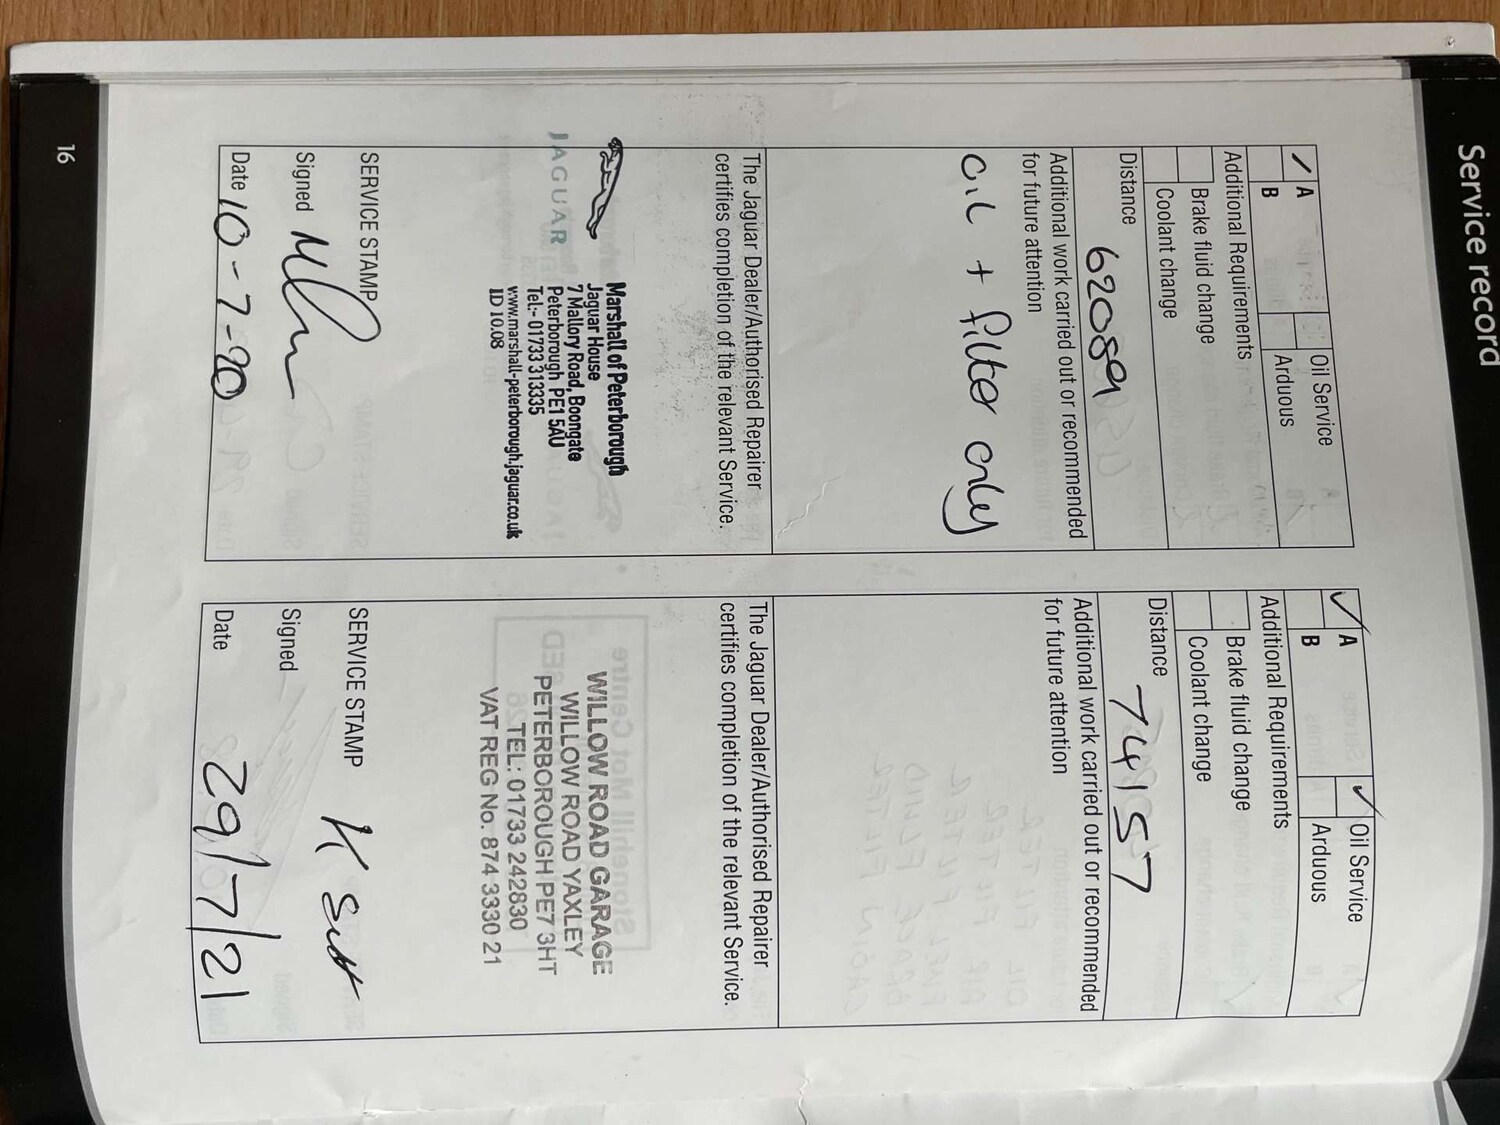 Service record
A
B
Oil Service
Arduous
Additional Requirements
Brake fluid change
Coolant change
Distance 62089
Additional work carried out or recommended
for future attention
Oil + filter only
The Jaguar Dealer/Authorised Repairer
certifies completion of the relevant Service.
JAGUAR
Marshall of Peterborough
Jaguar House
7 Mallory Road, Boongate
Peterborough PE1 5AU
Tel:- 01733 313335
www.marshall-peterborough.jaguar.co.uk
ID 10.08
SERVICE STAMP
Signed
Date 10-7-20
A
B
Oil Service
Arduous
Additional Requirements
Brake fluid change
Coolant change
Distance 74157
Additional work carried out or recommended
for future attention
The Jaguar Dealer/Authorised Repairer
certifies completion of the relevant Service.
WILLOW ROAD GARAGE
WILLOW ROAD YAXLEY
PETERBOROUGH PE7 3HT
TEL: 01733 242830
VAT REG No. 874 3330 21
SERVICE STAMP
Signed
Date 29/7/21
16